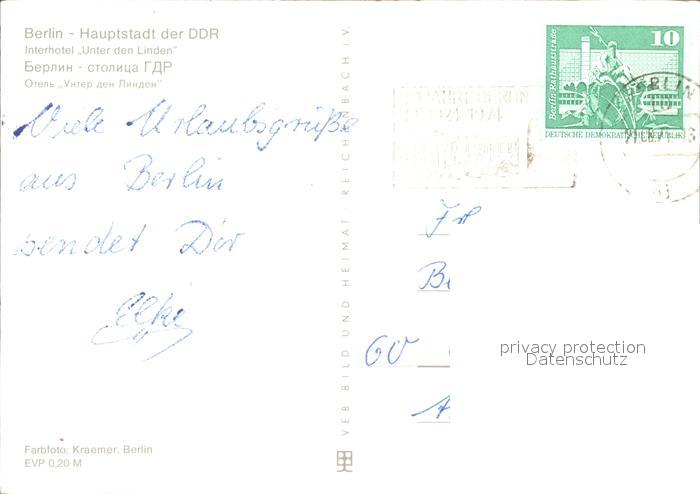 Berlin - Hauptstadt der DDR
Interhotel „Unter den Linden"
Берлин - столица ГДР
Отель „Унтер ден Линден"
Viele Urlaubsgrüße
aus Berlin
sendet Dir
Elke
Farbfoto: Kraemer, Berlin
EVP 0,20 M
VEB BILD UND HEIMAT REICHENBACH i.V.
10
Berlin Rathausstraße
DEUTSCHE DEMOKRATISCHE REPUBLIK
BERLIN
60
privacy protection
Datenschutz